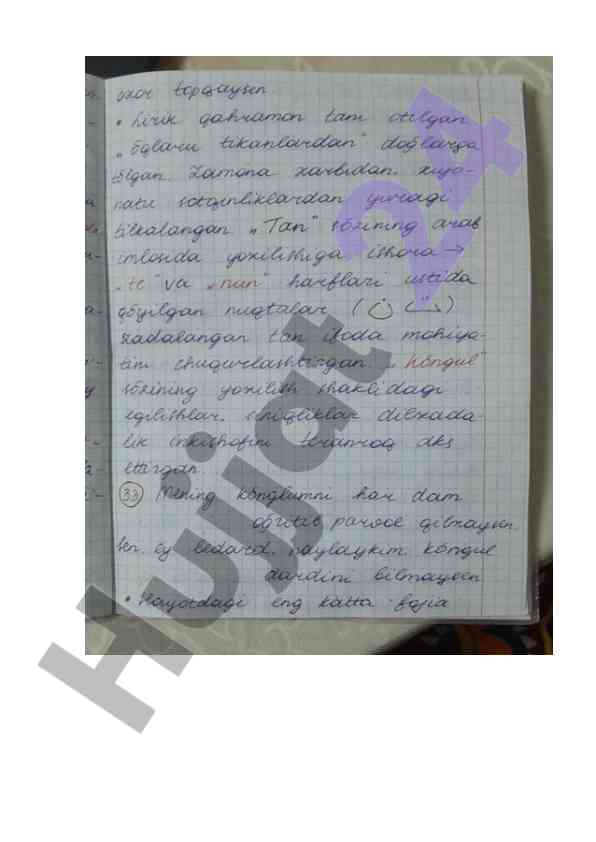 oxor topqaysen.
• Lirik qahramon tani otilgan
„õqlaru tikanlardan" doğlarga
tõlgan. Zamona zarbidan, xiyo-
natu sotqinliklardan yuragi
tilkalangan. „Tan" sõzining arab
imlosida yozilishiga ishora →
„te" va „nun" harflari ustida
qõyilgan nuqtalar
zadalangan tan ifoda mohiya-
tini chuqurlashtirgan. „kõngul"
sõzining yozilish shaklidagi
egilishlar, siniqliklar dilxada-
lik inkishofini teranroq aks
ettirgan.
33 Mening kõnglumni har dam
oğritib parvoe qilmaysen.
Sen, ey bedard, naylaykim, kõngul
dardini bilmaysen
• Hayotdagi eng katta fojia
Hujjat 24